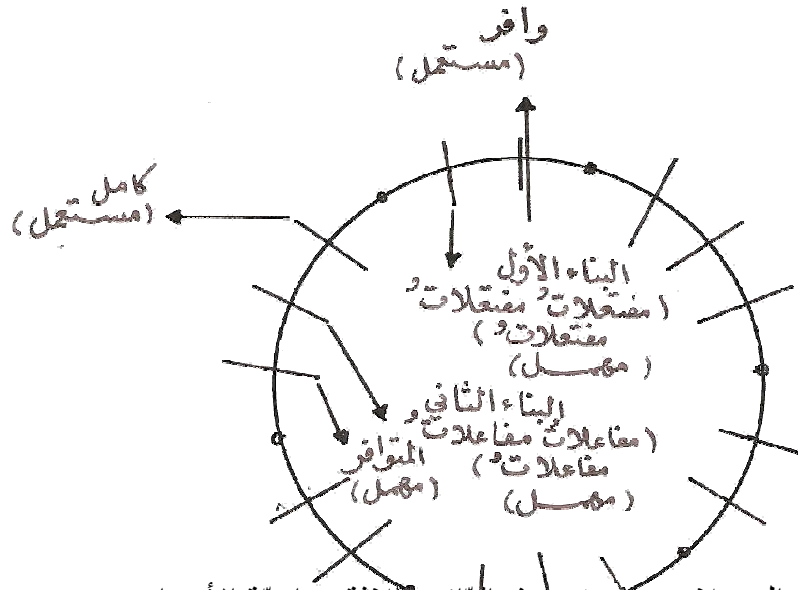 وافر
(مستعمل)
كامل
(مستعمل)
البناء الأول
(مفتعلاتُ مفتعلاتُ
مفتعلاتُ)
(مهمل)
البناء الثاني
(مفاعلاتُ مفاعلاتُ
مفاعلاتُ)
(مهمل)
المتوافر
(مهمل)